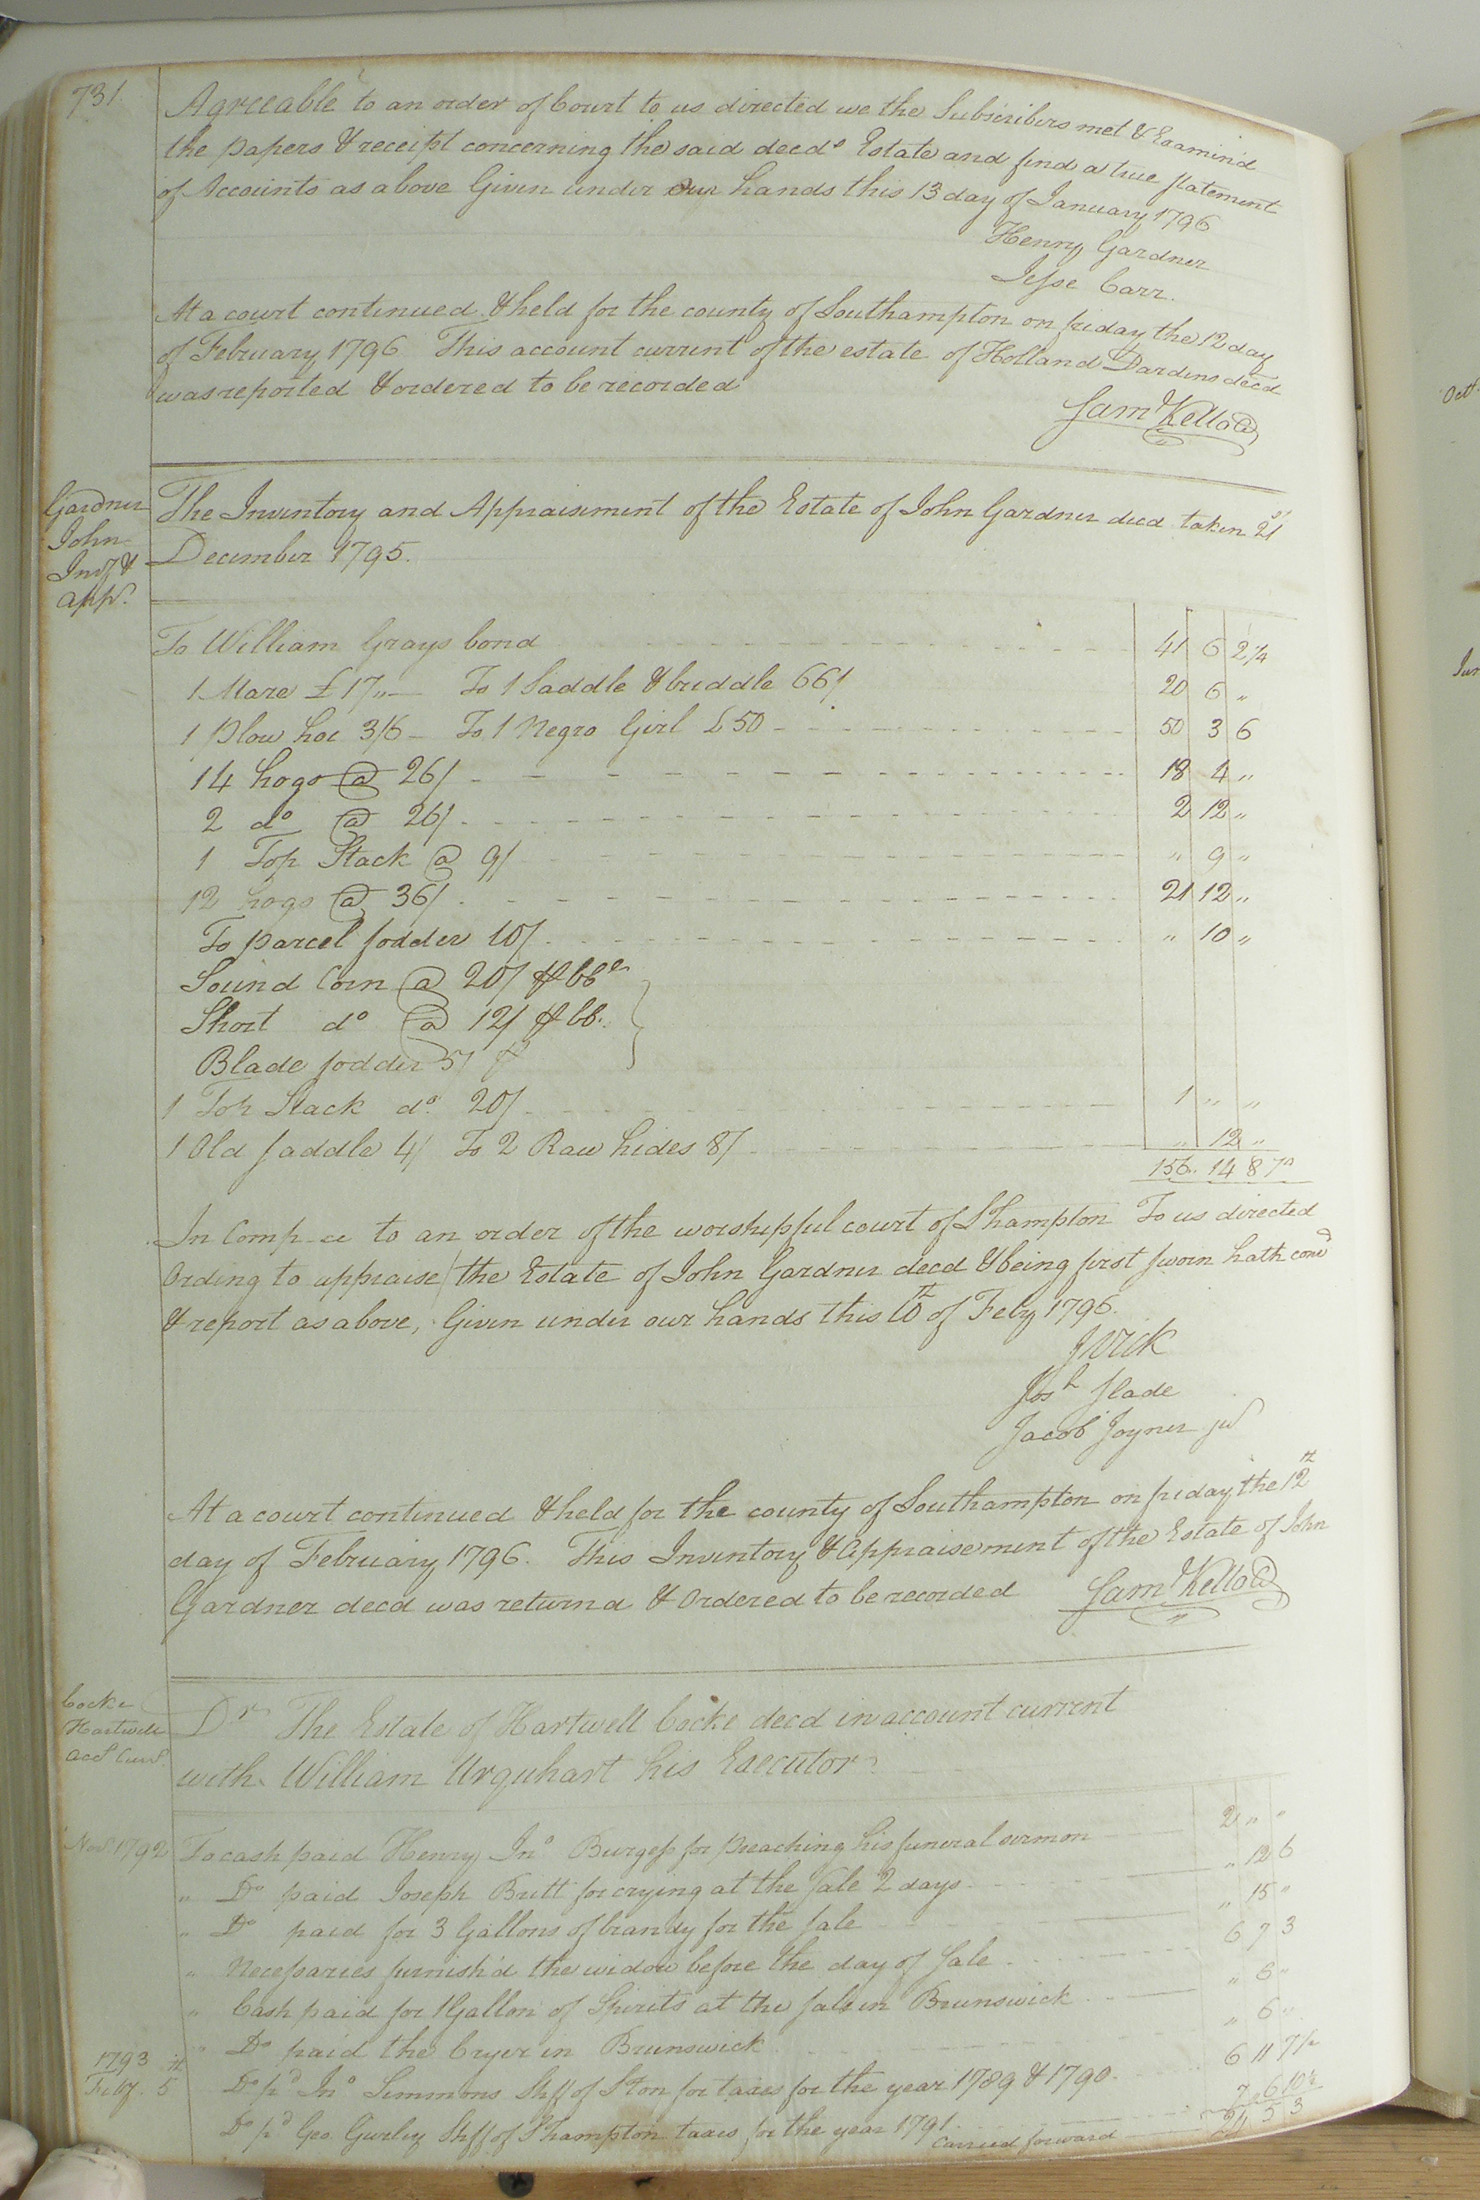 731.
Agreeable to an order of Court to us directed we the Subscribers met & Examin'd
the papers & receipt concerning the said decds Estate and find a true statement
of Accounts as above Given under our hands this 13 day of January 1796
Henry Gardner
Jesse Carr.
At a court continued & held for the county of Southampton on friday the 12 day
of February 1796 This account current of the estate of Holland Dardens decd
was reported & ordered to be recorded
Saml Kello CC
Gardner
John
Invy &
appt.
The Inventory and Appraisement of the Estate of John Gardner decd taken 21st
December 1795.
To William Grays bond 41 6 2¼
1 Mare £17"— To 1 Saddle & briddle 66/ 20 6 "
1 Plow hoe 3/6 — To 1 Negro Girl £50 - 50 3 6
14 hogs @ 26/ - 18 4 "
2 do @ 26/ - 2 12 "
1 Top Stack @ 9/ " 9 "
12 hogs @ 36/ - 21 12 "
To parcel fodder 10/ - " 10 "
Sound Corn @ 20/ ⅌ bb
Short do @ 12/ ⅌ bb.
Blade fodder 5/ ⅌
1 Top Stack do. 20/ - 1 " "
1 Old saddle 4/ To 2 Raw hides 8/ " 12 "
156.. 14 8
In Comp-ce to an order of the worshipful court of S hampton To us directed
Ording to appraise the Estate of John Gardner decd & being first sworn hath
& report as above, Given under our hands this 10th of Feby 1796.
Josh Slade
Jacob Joyner jur
At a court continued & held for the county of Southampton on friday the 12th
day of February 1796. This Inventory & Appraisement of the Estate of John
Gardner decd was returnd & Ordered to be recorded Saml Kello CC
Cocke
Hartwell
acct Curt
Dr The Estate of Hartwell Cocke decd in account current
with William Urquhart his Executor
Novr 1792 To cash paid Henry Jno Burgess for preaching his funeral sermon 2 " "
" Do paid Joseph Britt for crying at the sale 2 days - " 12 6
" Do paid for 3 Gallons of brandy for the sale " 15 "
" Necessaries furnish'd the widow before the day of Sale 6 7 3
" Cash paid for 1 Gallon of Spirits at the sale in Brunswick " 6 "
" Do paid the Cryer in Brunswick " 6 "
1793 Feby. 5th Do pd Jno Simmons Shff of S ton for taxes for the year 1789 & 1790. 6 11 7½
Do pd Geo. Gurley Shff of S hampton taxes for the year 1791.
Carried forward 24 5 3